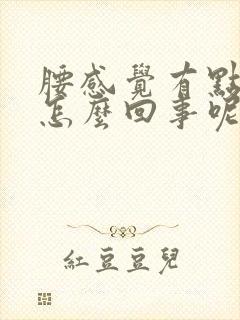 腰感覺有點
怎麼回事呢
紅豆豆兒